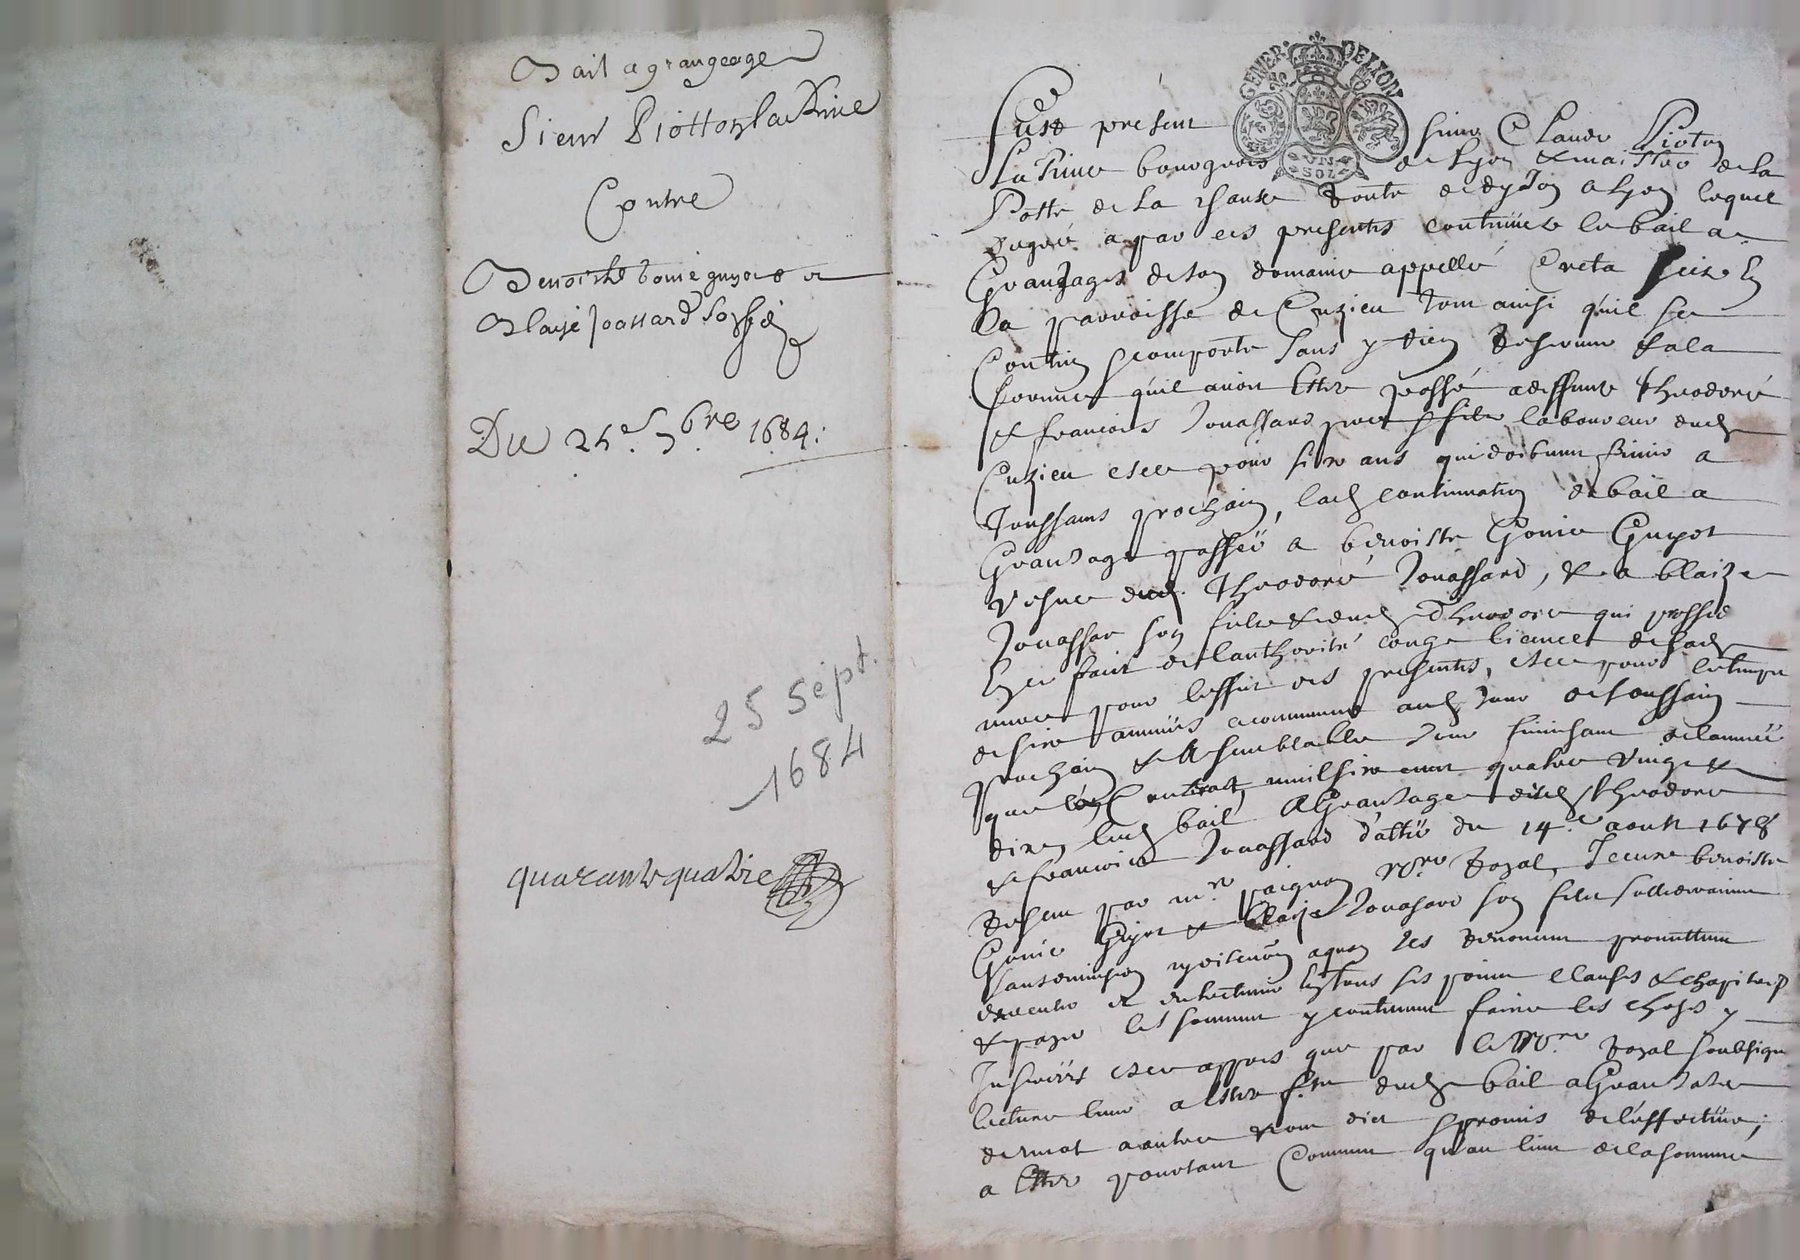 Bail a grangeage
Sieur Piotton la Rive
Contre
Benoiste Gonie guyot et
Blaize Joassard son fils
Du 25e 7bre 1684.
25 sept.
1684
quarante quatre
GENER. DE LYON
VN
SOL
Fust présent sieur Claude Pioton
La Rive bourgeois de Lyon & maistre de la
Poste de la haute Route de dijon a Lyon lequel
degré a par ces presentes continué le bail a
Grangage de son domaine appellé Creta scize en
la parroisse de Cuzieu tout ainsi quil se
Contien & comporte sans y rien Reserver & a la
forme quil avoit Ester passé a deffunt Theodore
& francois Jouassard pere & fils laboureur dud
Cuzieu et ce pour six ans qui doibvent finir a
Toussains prochain, lad continuation de bail a
Grangage passée a benoiste Gonie Guyot
vefve dud. Theodore Jouassard, & a blaize
Jouassar son fils & dud Theodore qui procede
de lauthorité congé licence de sad
mere pour leffait des presentes, et ce pour le temps
de six années a commencer aud Jour de Toussain
prochain & a semblable Jour finissant de lannée
que lon Contera mil six cent quatre vingt &
dix, led bail a Grangage desd Theodore
& francois Jouassard datté du 14.e aoust 1678
Receu par mr. paignon nore Royal, Iceux benoiste
Gonie Guyot & Blaize Jouasard son fils sollidairement
sans division ny discution a quoy Ils Renoncent promettent
executer et entretenir en tous ses points clauses & chapitres
& payer les sommes y contenues faire les choses y
Inserées et ce appres que par le Nore Royal soubsigné
lecture leur a este faite dud bail a Grangage
de mot a autre & ont dict & promis de l'effectuer,
a Ester pourtant Convenu qu'au lieu de la somme